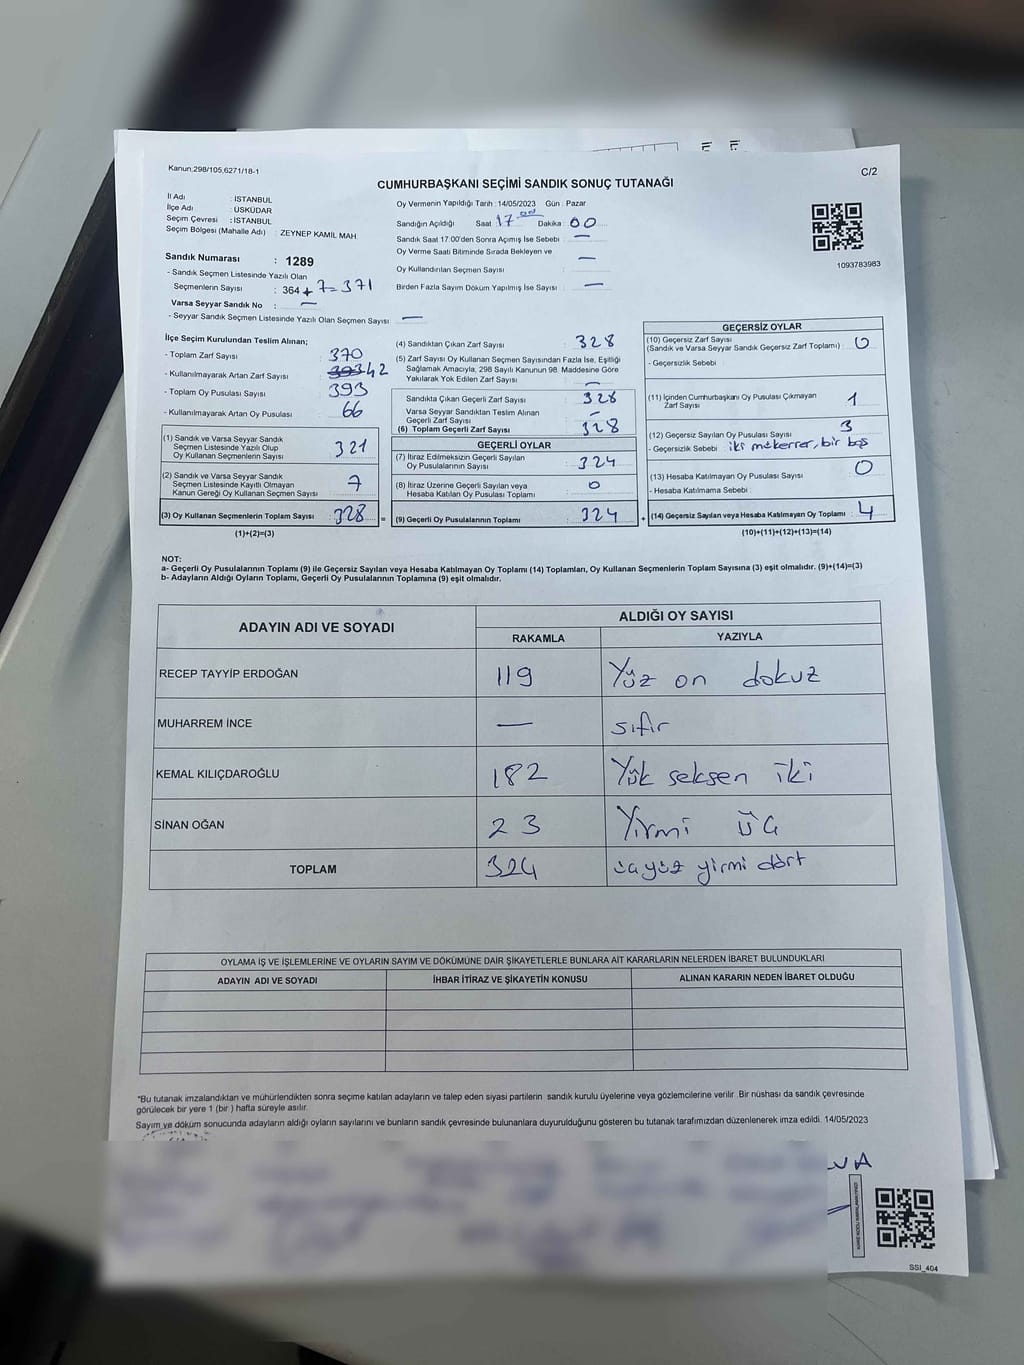 Kanun;298/105,6271/18-1
C/2
CUMHURBAŞKANI SEÇİMİ SANDIK SONUÇ TUTANAĞI
İl Adı : İSTANBUL
İlçe Adı : ÜSKÜDAR
Seçim Çevresi : İSTANBUL
Seçim Bölgesi (Mahalle Adı) : ZEYNEP KAMİL MAH.
Sandık Numarası : 1289
- Sandık Seçmen Listesinde Yazılı Olan
Seçmenlerin Sayısı : 364 + 7 = 371
Varsa Seyyar Sandık No : —
- Seyyar Sandık Seçmen Listesinde Yazılı Olan Seçmen Sayısı : —
Oy Vermenin Yapıldığı Tarih : 14/05/2023 Gün : Pazar
Sandığın Açıldığı Saat 17.00 Dakika : 00
Sandık Saat 17.00'den Sonra Açılmış İse Sebebi : —
Oy Verme Saati Bitiminde Sırada Bekleyen ve
Oy Kullandırılan Seçmen Sayısı : —
Birden Fazla Sayım Döküm Yapılmış İse Sayısı : —
1093783983
İlçe Seçim Kurulundan Teslim Alınan;
- Toplam Zarf Sayısı : 370
- Kullanılmayarak Artan Zarf Sayısı : 42
- Toplam Oy Pusulası Sayısı : 393
- Kullanılmayarak Artan Oy Pusulası : 66
(1) Sandık ve Varsa Seyyar Sandık
Seçmen Listesinde Yazılı Olup
Oy Kullanan Seçmenlerin Sayısı : 321
(2) Sandık ve Varsa Seyyar Sandık
Seçmen Listesinde Kayıtlı Olmayan
Kanun Gereği Oy Kullanan Seçmen Sayısı : 7
(3) Oy Kullanan Seçmenlerin Toplam Sayısı : 328
(1)+(2)=(3)
=
(4) Sandıktan Çıkan Zarf Sayısı : 328
(5) Zarf Sayısı Oy Kullanan Seçmen Sayısından Fazla İse, Eşitliği
Sağlamak Amacıyla, 298 Sayılı Kanunun 98. Maddesine Göre
Yakılarak Yok Edilen Zarf Sayısı : —
Sandıkta Çıkan Geçerli Zarf Sayısı : 328
Varsa Seyyar Sandıktan Teslim Alınan
Geçerli Zarf Sayısı : —
(6) Toplam Geçerli Zarf Sayısı : 328
GEÇERLİ OYLAR
(7) İtiraz Edilmeksizin Geçerli Sayılan
Oy Pusulalarının Sayısı : 324
(8) İtiraz Üzerine Geçerli Sayılan veya
Hesaba Katılan Oy Pusulası Toplamı : 0
(9) Geçerli Oy Pusulalarının Toplamı : 324
+
GEÇERSİZ OYLAR
(10) Geçersiz Zarf Sayısı
(Sandık ve Varsa Seyyar Sandık Geçersiz Zarf Toplamı) : 0
- Geçersizlik Sebebi :
(11) İçinden Cumhurbaşkanı Oy Pusulası Çıkmayan
Zarf Sayısı : 1
(12) Geçersiz Sayılan Oy Pusulası Sayısı : 3
- Geçersizlik Sebebi : iki mükerrer, bir boş
(13) Hesaba Katılmayan Oy Pusulası Sayısı : 0
- Hesaba Katılmama Sebebi :
(14) Geçersiz Sayılan veya Hesaba Katılmayan Oy Toplamı : 4
(10)+(11)+(12)+(13)=(14)
NOT:
a- Geçerli Oy Pusulalarının Toplamı (9) ile Geçersiz Sayılan veya Hesaba Katılmayan Oy Toplamı (14) Toplamları, Oy Kullanan Seçmenlerin Toplam Sayısına (3) eşit olmalıdır. (9)+(14)=(3)
b- Adayların Aldığı Oyların Toplamı, Geçerli Oy Pusulalarının Toplamına (9) eşit olmalıdır.
ADAYIN ADI VE SOYADI ALDIĞI OY SAYISI
RAKAMLA YAZIYLA
RECEP TAYYİP ERDOĞAN 119 Yüz on dokuz
MUHARREM İNCE — sıfır
KEMAL KILIÇDAROĞLU 182 Yük seksen iki
SİNAN OĞAN 23 Yirmi üç
TOPLAM 324 üçyüz yirmi dört
OYLAMA İŞ VE İŞLEMLERİNE VE OYLARIN SAYIM VE DÖKÜMÜNE DAİR ŞİKAYETLERLE BUNLARA AİT KARARLARIN NELERDEN İBARET BULUNDUKLARI
ADAYIN ADI VE SOYADI İHBAR İTİRAZ VE ŞİKAYETİN KONUSU ALINAN KARARIN NEDEN İBARET OLDUĞU
*Bu tutanak imzalandıktan ve mühürlendikten sonra seçime katılan adayların ve talep eden siyasi partilerin sandık kurulu üyelerine veya gözlemcilerine verilir. Bir nüshası da sandık çevresinde
görülecek bir yere 1 (bir ) hafta süreyle asılır.
Sayım ve döküm sonucunda adayların aldığı oyların sayılarını ve bunların sandık çevresinde bulunanlara duyurulduğunu gösteren bu tutanak tarafımızdan düzenlenerek imza edildi. 14/05/2023
SSI_404